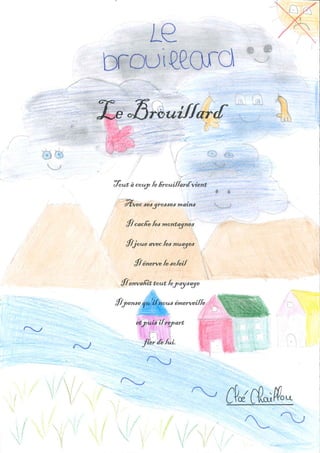 Le
brouillard
Le Brouillard
Tout à coup le brouillard vient
Avec ses grosses mains
Il cache les montagnes
Il joue avec les nuages
Il énerve le soleil
Il envahit tout le paysage
Il pense qu'il nous émerveille
et puis il repart
fier de lui.
Cloé Chaillou